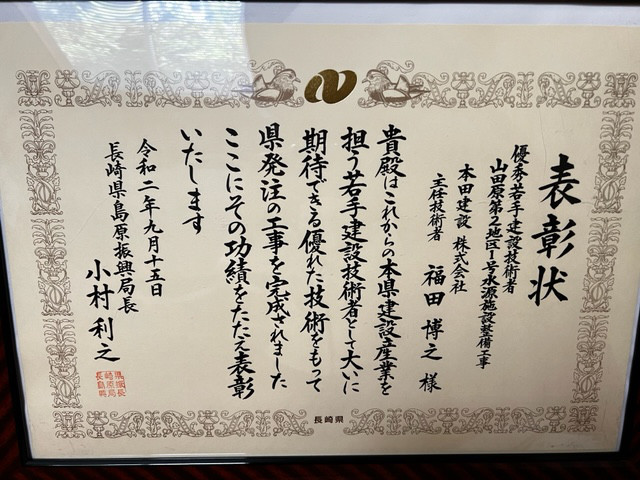 表彰状
優秀若手建設技術者
山田原第2地区1号水源施設整備工事
本田建設 株式会社
主任技術者 福田 博之 様
貴殿はこれからの本県建設産業を
担う若手建設技術者として大いに
期待できる優れた技術をもって
県発注の工事を完成されました
ここにその功績をたたえ表彰
いたします
令和二年九月十五日
長崎県島原振興局長
小村利之
長崎県